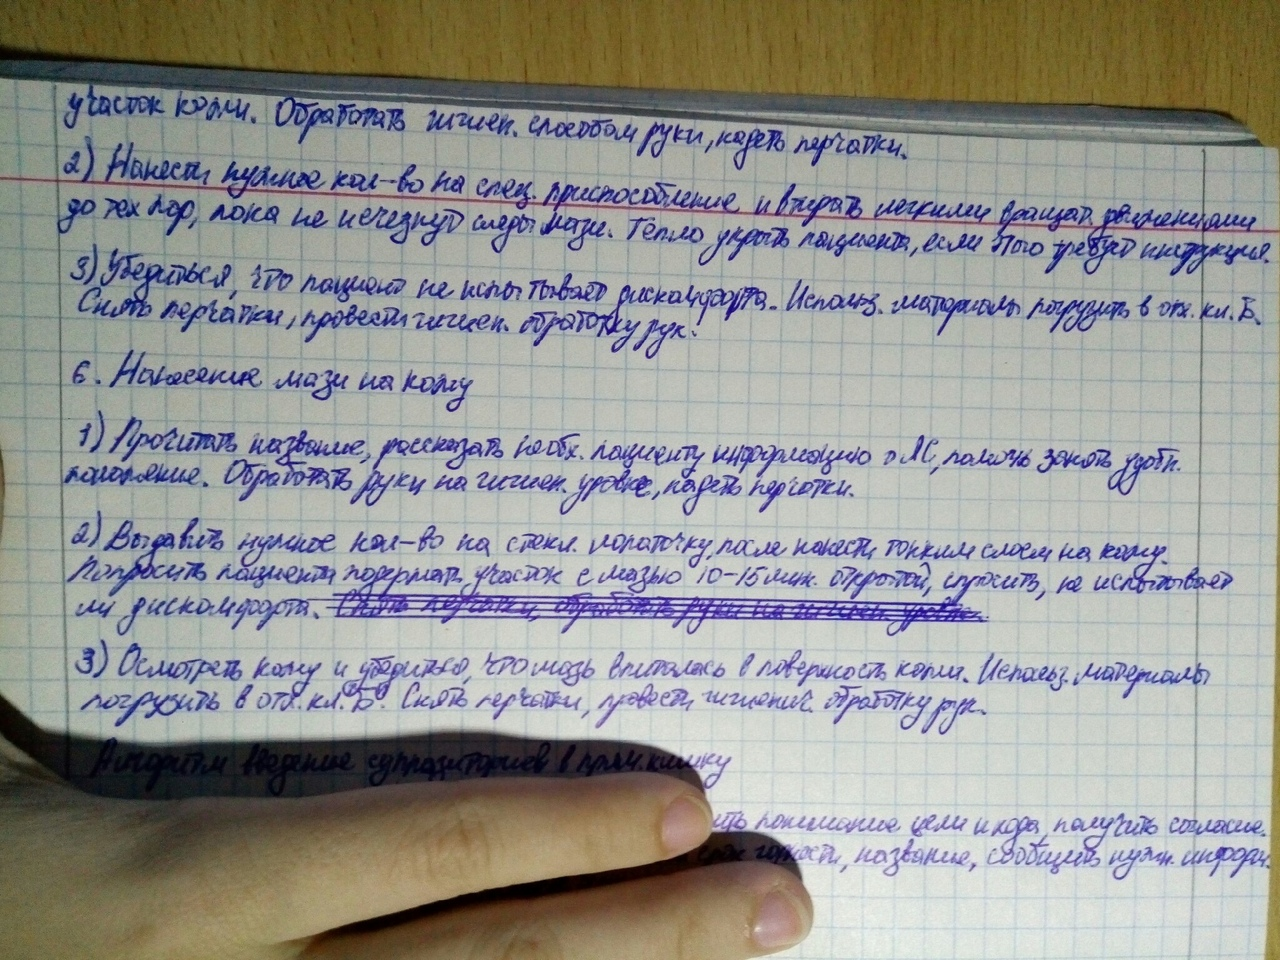 участок кожи. Обработать гигиен. способом руки, надеть перчатки.
2) Нанести нужное кол-во на спец. приспособление и втирать легкими вращат. движениями
до тех пор, пока не исчезнут следы мази. Тепло укрыть пациента, если этого требует инструкция.
3) Убедиться, что пациент не испытывает дискомфорта. Использ. материалы погрузить в отх. кл. Б.
Снять перчатки, провести гигиен. обработку рук.
6. Нанесение мази на кожу
1) Прочитать название, рассказать необх. пациенту информацию о ЛС, помочь занять удобн.
положение. Обработать руки на гигиен. уровне, надеть перчатки.
2) Выдавить нужное кол-во на стекл. лопаточку, после нанести тонким слоем на кожу.
Попросить пациента подержать участок с мазью 10-15 мин. открытой, спросить, не испытывает
ли дискомфорта. Снять перчатки, обработать руки на гигиен. уровне.
3) Осмотреть кожу и убедиться, что мазь впиталась в поверхность кожи. Использ. материалы
погрузить в отх. кл. "Б". Снять перчатки, провести гигиенич. обработку рук.
Алгоритм введение суппозиториев в прям. кишку
понимание цели и хода, получить согласие.
срок годности, название, сообщить нужн. информ.